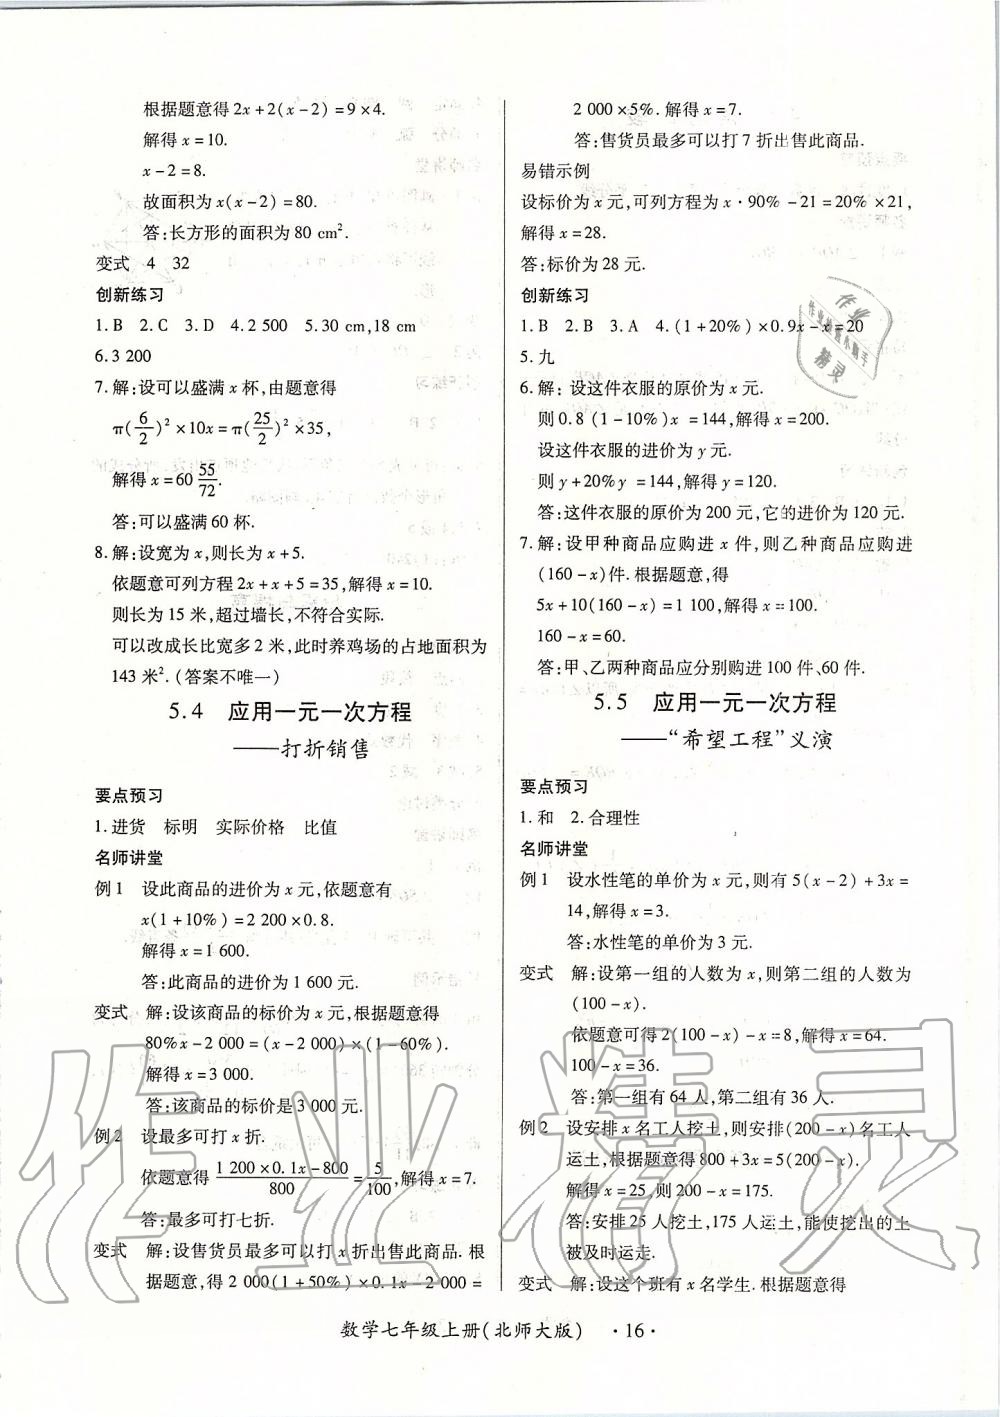 根据题意得2x+2(x-2)=9×4.
解得x=10.
x-2=8.
故面积为x(x-2)=80.
答:长方形的面积为80 cm².
变式 4 32
创新练习
1.B 2.C 3.D 4.2 500 5.30 cm,18 cm
6.3 200
7.解:设可以盛满x杯,由题意得
π(6/2)²×10x=π(25/2)²×35,
解得x=60 55/72.
答:可以盛满60杯.
8.解:设宽为x,则长为x+5.
依题意可列方程2x+x+5=35,解得x=10.
则长为15米,超过墙长,不符合实际.
可以改成长比宽多2米,此时养鸡场的占地面积为
143米².(答案不唯一)
5.4 应用一元一次方程
——打折销售
要点预习
1.进货 标明 实际价格 比值
名师讲堂
例1 设此商品的进价为x元,依题意有
x(1+10%)=2 200×0.8.
解得x=1 600.
答:此商品的进价为1 600元.
变式 解:设该商品的标价为x元,根据题意得
80%x-2 000=(x-2 000)×(1-60%).
解得x=3 000.
答:该商品的标价是3 000元.
例2 设最多可打x折.
依题意得(1 200×0.1x-800)/800=5/100,解得x=7.
答:最多可打七折.
变式 解:设售货员最多可以打x折出售此商品.根
据题意,得2 000(1+50%)×0.1x-2 000=
2 000×5%.解得x=7.
答:售货员最多可以打7折出售此商品.
易错示例
设标价为x元,可列方程为x·90%-21=20%×21,
解得x=28.
答:标价为28元.
创新练习
1.B 2.B 3.A 4.(1+20%)×0.9x-x=20
5.九
6.解:设这件衣服的原价为x元.
则0.8(1-10%)x=144,解得x=200.
设这件衣服的进价为y元.
则y+20%y=144,解得y=120.
答:这件衣服的原价为200元,它的进价为120元.
7.解:设甲种商品应购进x件,则乙种商品应购进
(160-x)件.根据题意,得
5x+10(160-x)=1 100,解得x=100.
160-x=60.
答:甲、乙两种商品应分别购进100件、60件.
5.5 应用一元一次方程
——“希望工程”义演
要点预习
1.和 2.合理性
名师讲堂
例1 设水性笔的单价为x元,则有5(x-2)+3x=
14,解得x=3.
答:水性笔的单价为3元.
变式 解:设第一组的人数为x,则第二组的人数为
(100-x).
依题意可得2(100-x)-x=8,解得x=64.
100-x=36.
答:第一组有64人,第二组有36人.
例2 设安排x名工人挖土,则安排(200-x)名工人
运土,根据题意得800+3x=5(200-x).
解得x=25,则200-x=175.
答:安排25人挖土,175人运土,能使挖出的土
被及时运走.
变式 解:设这个班有x名学生.根据题意得
数学七年级上册(北师大版) ·16·
作业精灵
作业
作业检查小助手
精灵